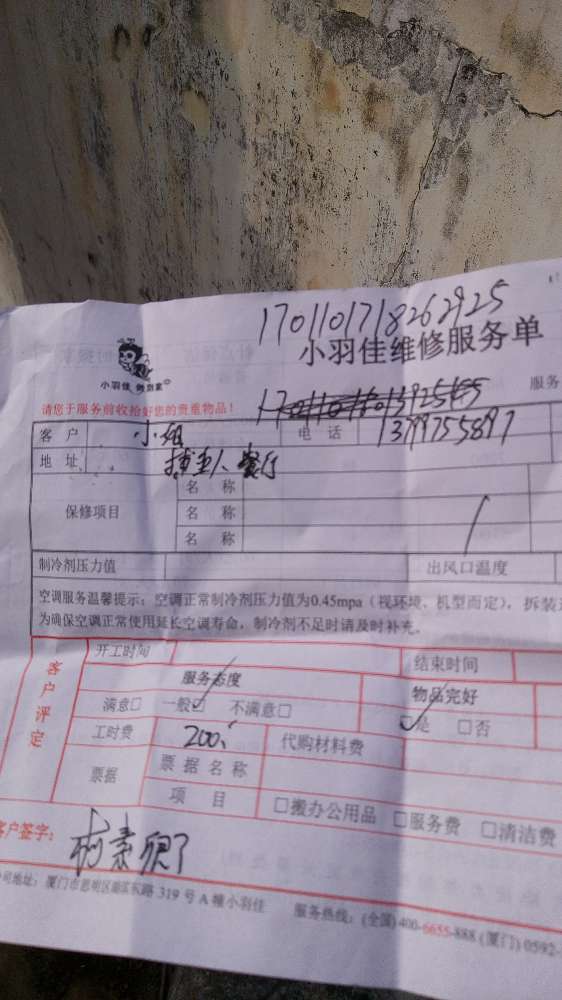 1701101718262925
小羽佳维修服务单
小羽佳 例如家
请您于服务前收拾好您的贵重物品！ 服务
客 户 小组 电 话 13799755897
地 址 餐厅
保修项目 名 称
名 称
名 称
制冷剂压力值 出风口温度
空调服务温馨提示：空调正常制冷剂压力值为0.45mpa（视环境、机型而定），拆装
为确保空调正常使用延长空调寿命，制冷剂不足时请及时补充。
客户评定
开工时间 结束时间
服务态度 物品完好
满意□ 一般☑ 不满意□ ☑是 □否
工时费 200 代购材料费
票据 票据名称
项 目 □搬办公用品 □服务费 □清洁费
客户签字：
公司地址：厦门市思明区 路 319 号 A 幢小羽佳 服务热线：(全国) 400-6655-888 (厦门) 0592-